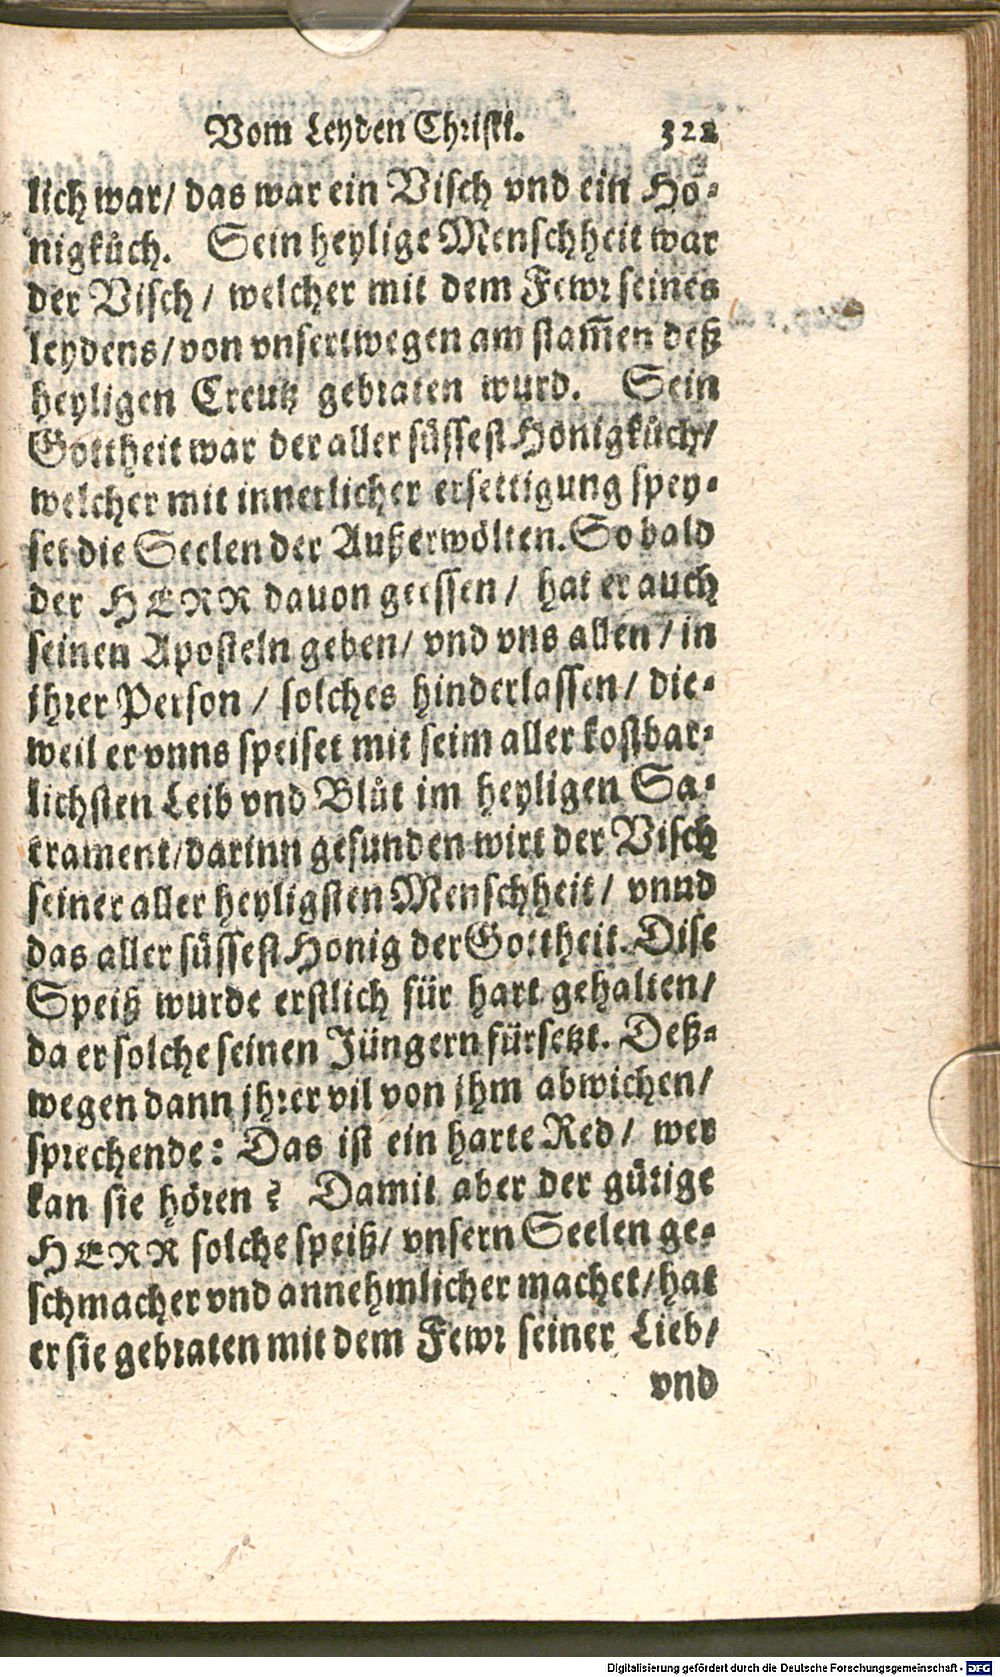 Vom Leyden Christi. 322
lich war/ das war ein Visch vnd ein Ho-
nigkůch. Sein heylige Menschheit war
der Visch / welcher mit dem Fewr seines
leydens/ von vnsertwegen am stam̄en deß
heyligen Creutz gebraten wurd. Sein
Gottheit war der aller süssest Honigkůch/
welcher mit innerlicher ersettigung spey-
set die Seelen der Außerwölten. So bald
der HERR dauon geessen / hat er auch
seinen Aposteln geben/ vnd vns allen / in
jhrer Person / solches hinderlassen / die-
weil er vnns speiset mit seim aller kostbar-
lichsten Leib vnd Blůt im heyligen Sa-
crament/ darinn gefunden wirt der Visch
seiner aller heyligsten Menschheit / vnnd
das aller süssest Honig der Gottheit. Dise
Speiß wurde erstlich für hart gehalten/
da er solche seinen Jüngern fürsetzt. Deß-
wegen dann jhrer vil von jhm abwichen/
sprechende: Das ist ein harte Red / wer
kan sie hören? Damit aber der gütige
HERR solche speiß/ vnsern Seelen ge-
schmacher vnd annehmlicher machet/ hat
er sie gebraten mit dem Fewr seiner Lieb/
vnd
Digitalisierung gefördert durch die Deutsche Forschungsgemeinschaft - DFG